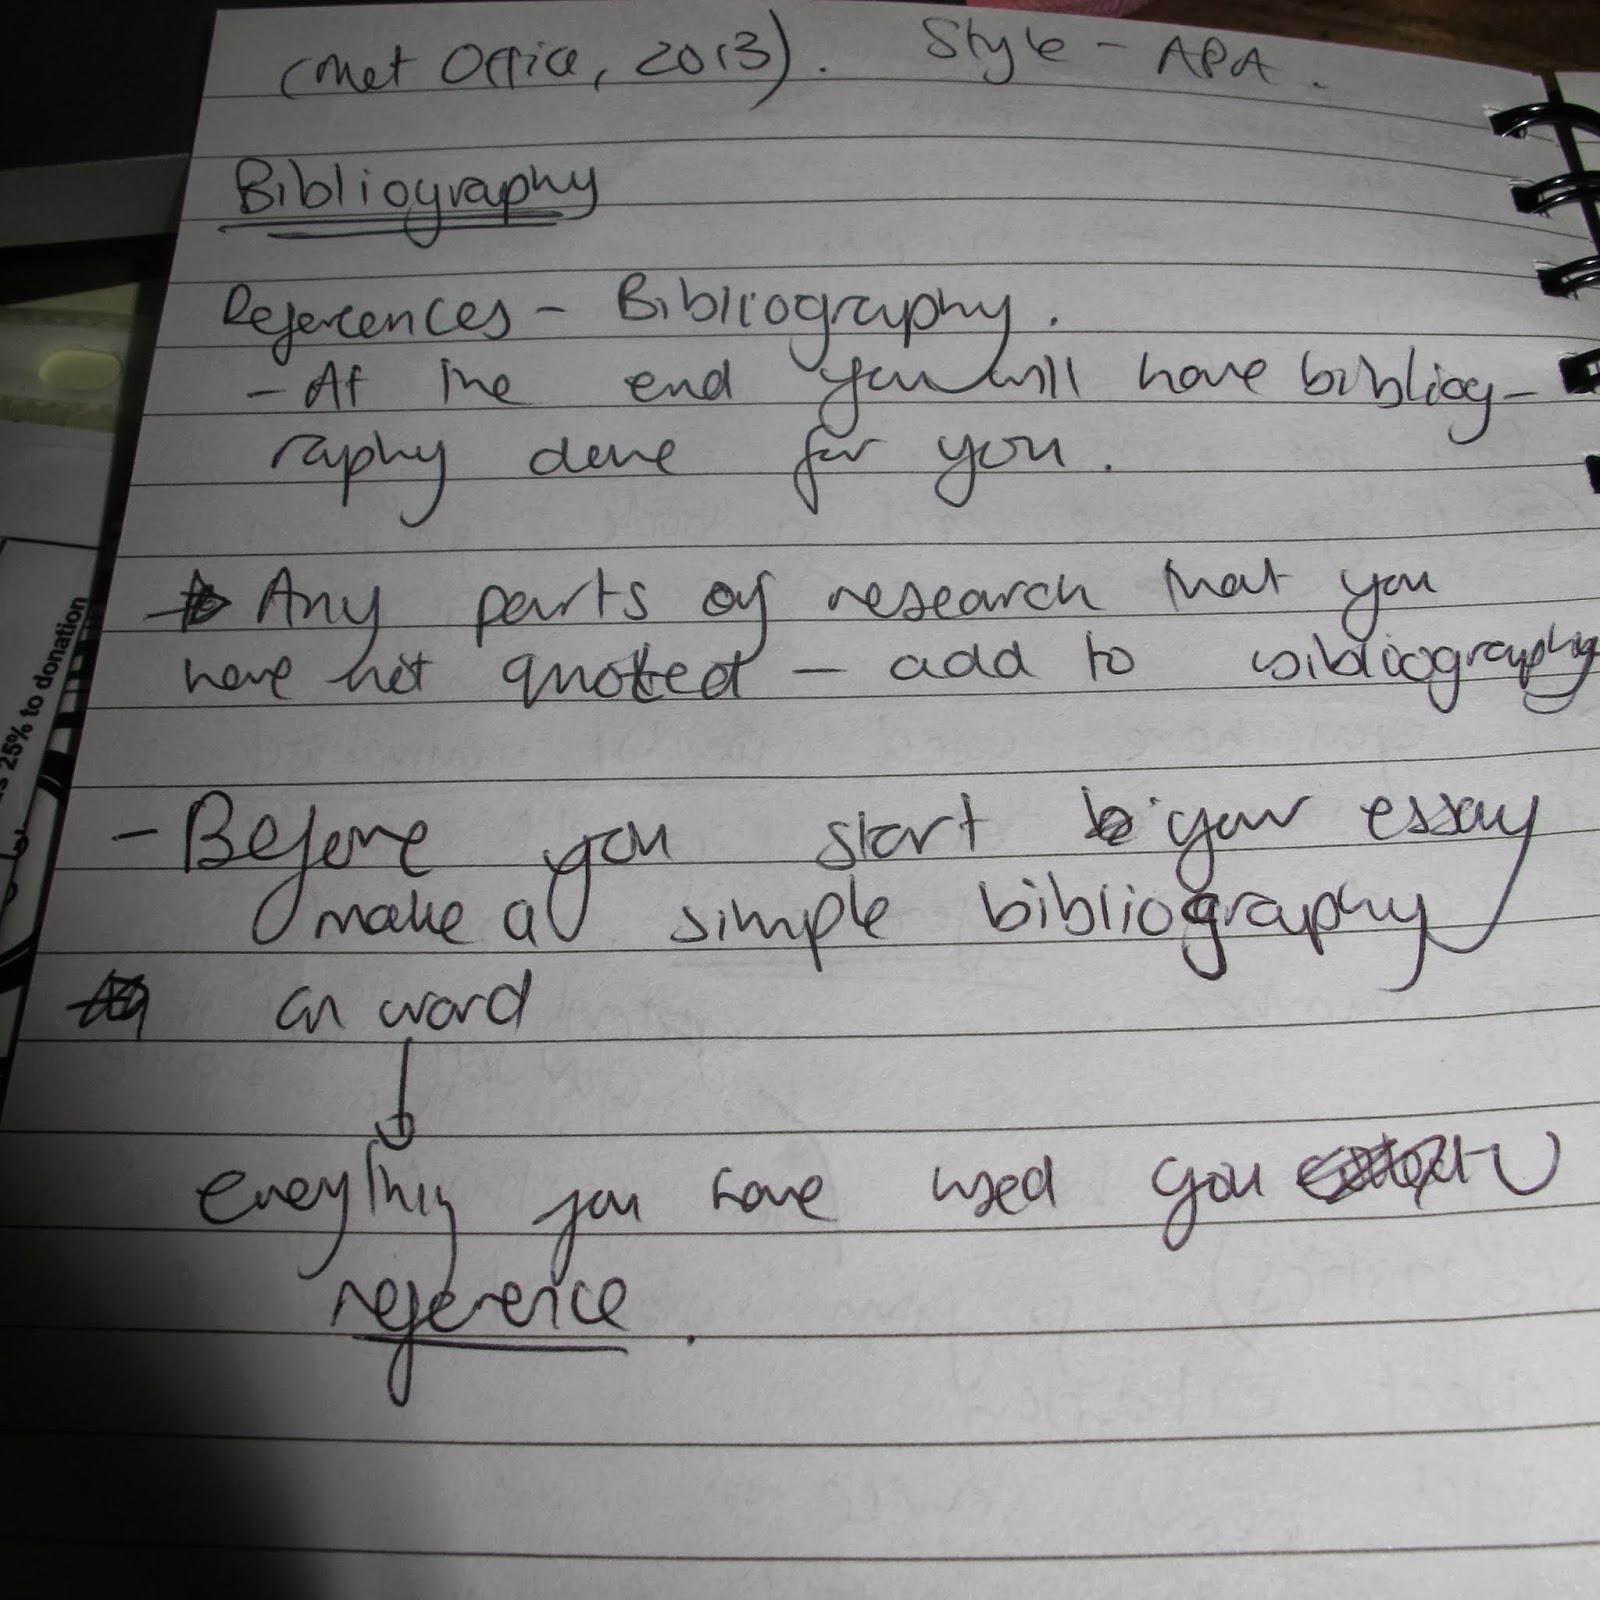 (Met Office, 2013). Style - APA.
Bibliography
References - Bibliography.
- At the end you will have bibliog-
raphy done for you.
Any parts of research that you
have not quoted - add to bibliography
- Before you start your essay
make a simple bibliography
on word
everything you have used you
reference.
25% to donation